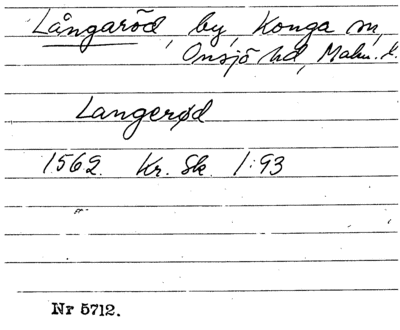 Långaröd, by, Konga sn,
Onsjö hd, Malm. l.
Langerød
1562. Kr. Sk. 1:93
Nr 5712.